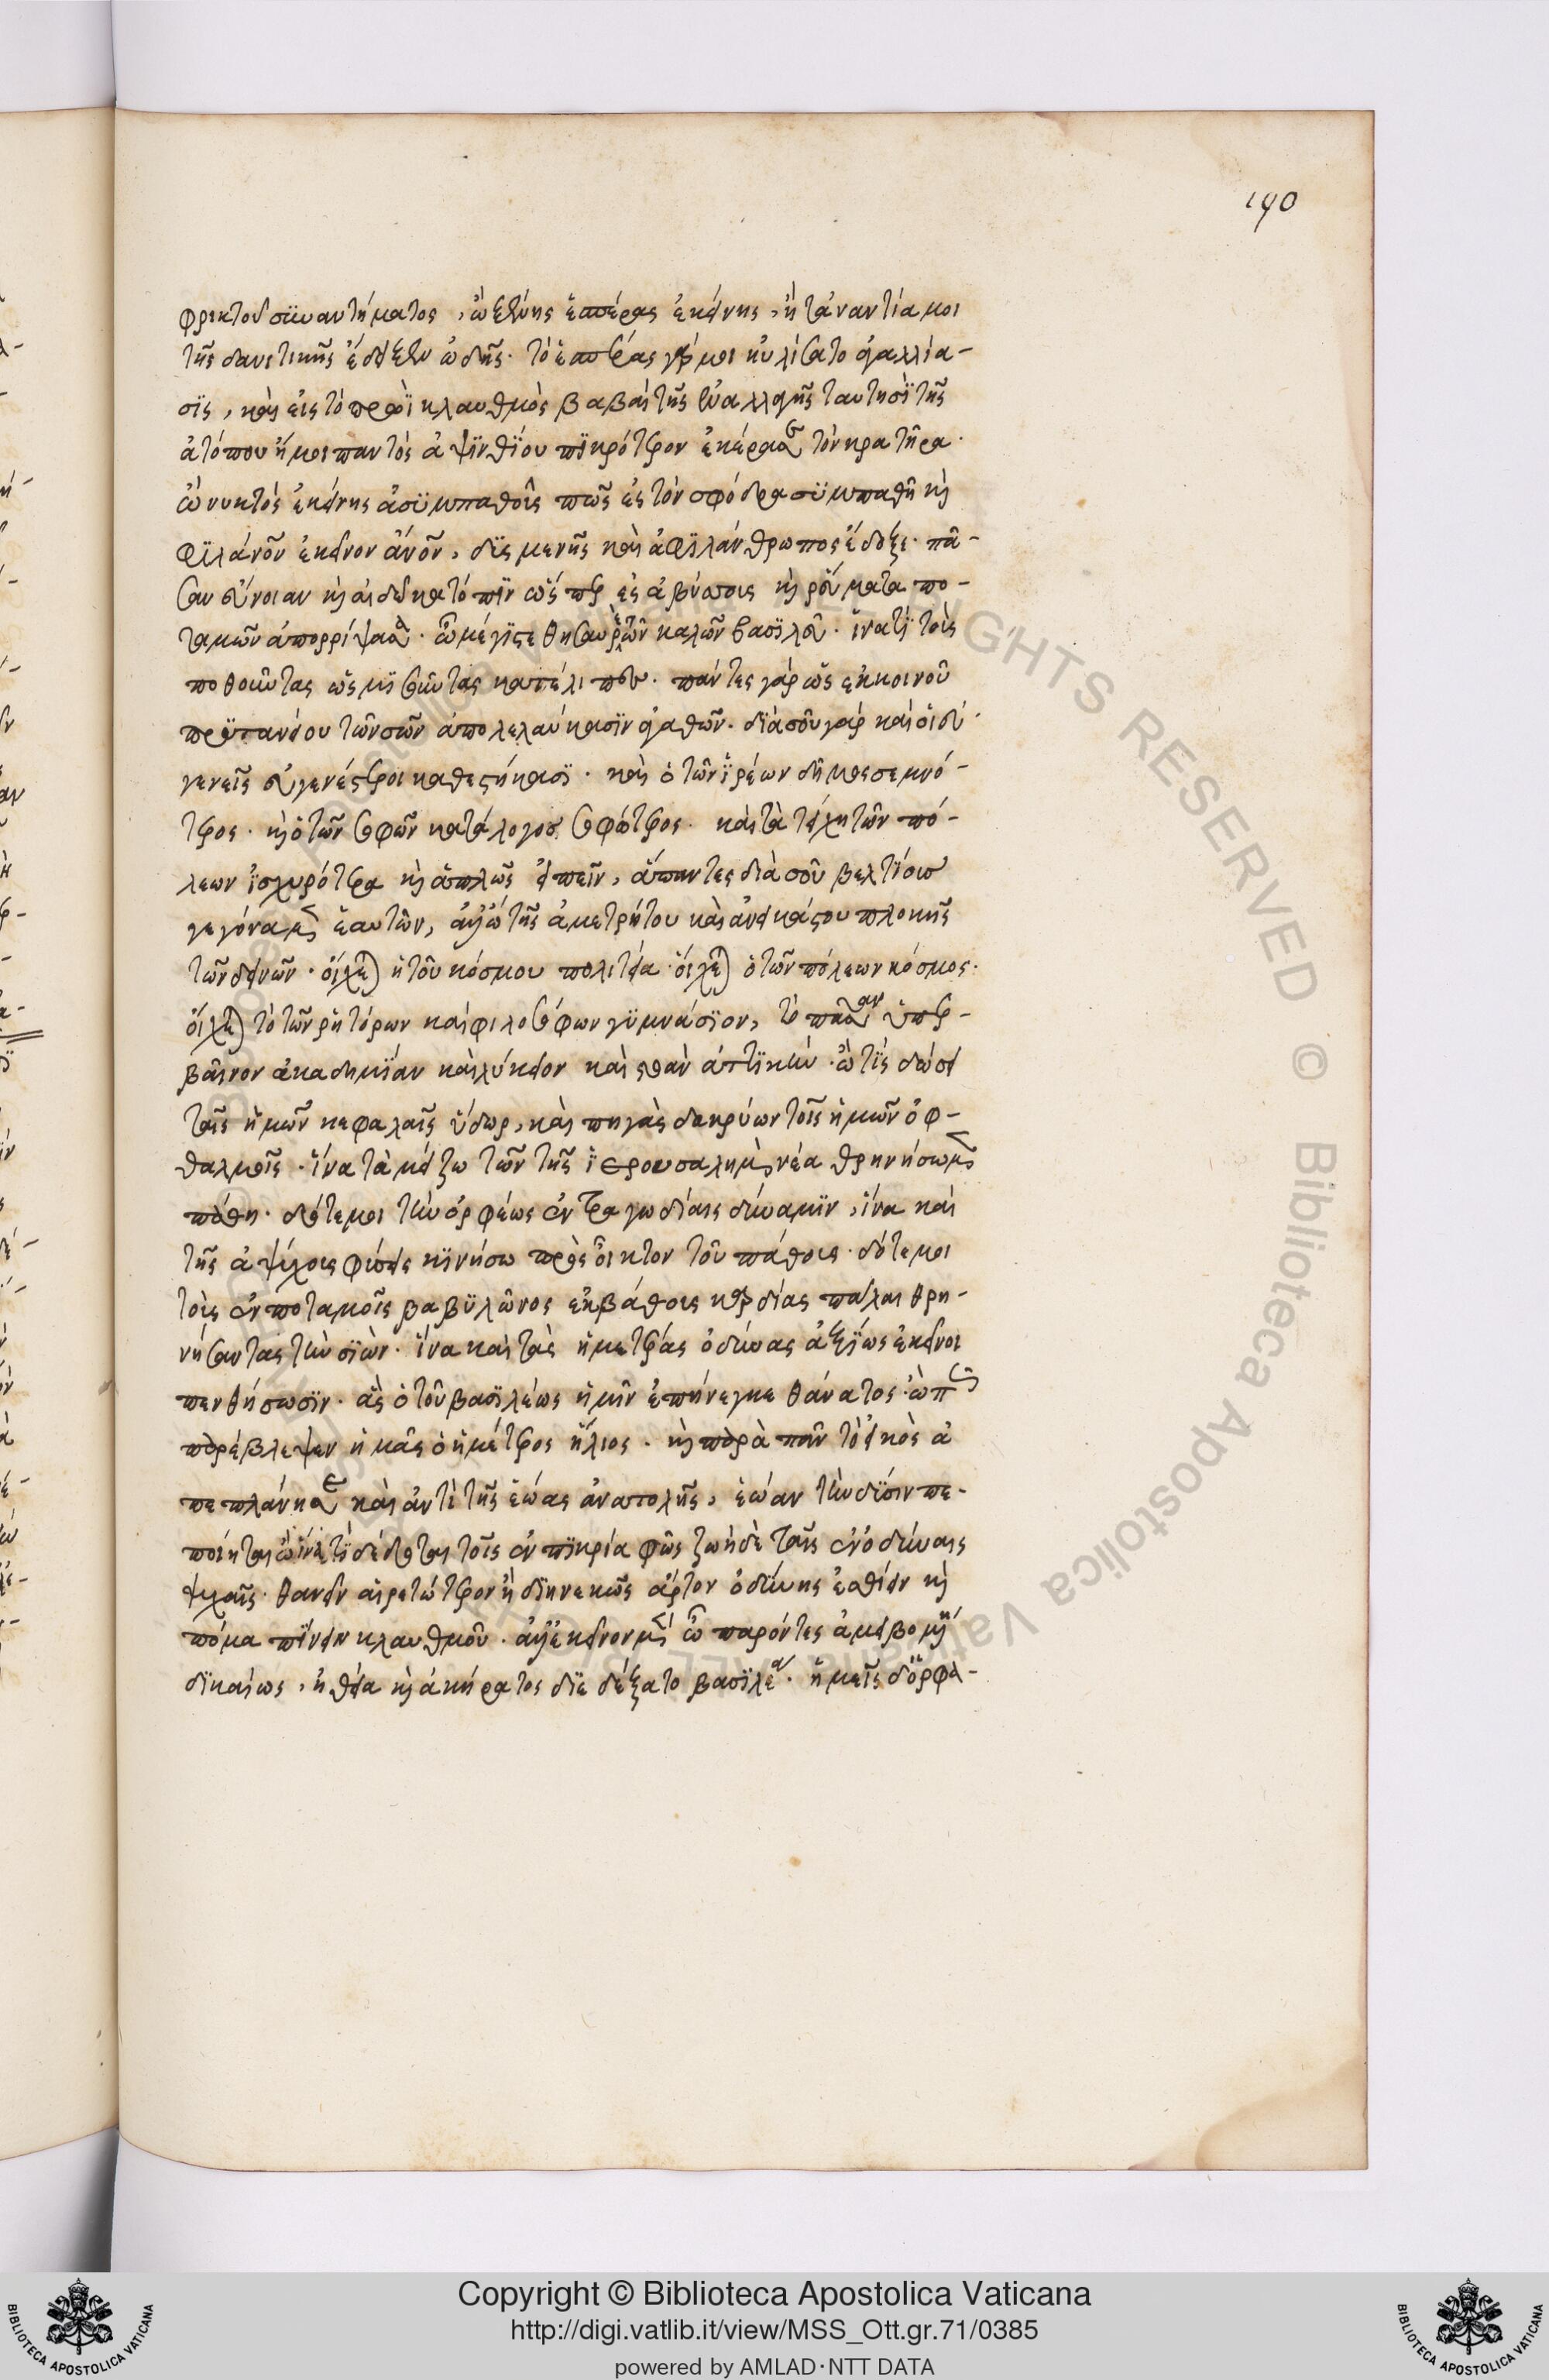 190
φρικτοῦ συναντήματος, ὢ ξένης ἑσπέρας ἐκείνης, ἣ τἀναντία μοι
τῆς δαυιτικῆς ἔδειξεν ὠδῆς· τὸ ἑσπέρας γάρ μοι ηὐλίσατο ἀγαλλία-
σϊς, καὶ εἰς τὸ πρωῒ κλαυθμὸς βαβαὶ τῆς ἐναλλαγῆς ταυτησῒ τῆς
ἀτόπου ἥ μοι παντὸς ἀψϊνθΐου πϊκρότερον ἐκέρασε τὸν κρατῆρα·
ὢ νυκτὸς ἐκείνης ἀσϋμπαθοῦς πῶς ἐς τὸν σφόδρα σϋμπαθῆ κὶ
φϊλάνον ἐκεῖνον ἄνον, δϋσμενὴς καὶ ἀφϊλάνθρωπος ἔδοξε· πᾶ-
σαν εὔνοιαν κὶ αἰδῶ κατόπϊν ὥσπερ ἐς ἀβύσσους κὶ ῥεύματα πο-
ταμῶν ἀπορρίψασα· ὦ μέγϊστε θησαυρὲ τῶν καλῶν βασϊλεῦ· ἵνατϊ τοὺς
ποθοῦντας ὡς μϊσοῦντας κατέλιπες· πάντες γὰρ ὡς ἐκ κοινοῦ
πρϋτανείου τῶν σῶν ἀπολελαύκασϊν ἀγαθῶν· δϊὰ σοῦ γὰρ καὶ οἱ εὐ-
γενεῖς εὐγενέστεροι καθεστήκασϊ· καὶ ὁ τῶν ἱ̈ρέων δῆμος σεμνό-
τερος· κὶ ὁ τῶν σοφῶν κατάλογος σοφώτερος· καὶ τὰ τείχη τῶν πό-
λεων ἰ̈σχυρότερα κὶ ἁπλῶς εἰπεῖν, ἅπαντες διὰ σοῦ βελτΐους
γεγόναμεν ἑαυτῶν, ἀλλ' ὢ τῆς ἀμετρήτου καὶ ἀνεικάστου πλοκῆς
τῶν δεινῶν· οἴχεται ἡ τοῦ κόσμου πολιτεία· οἴχεται ὁ τῶν πόλεων κόσμος·
οἴχεται τὸ τῶν ῥητόρων καὶ φιλοσόφων γϋμνάσϊον, τὸ πᾶσαν ὑπερ-
βαῖνον ἀκαδημΐαν καὶ λύκειον καὶ στοὰν ἀττϊκήν· ὢ τίς δώσει
ταῖς ἡμῶν κεφαλαῖς ὕδωρ, καὶ πηγὰς δακρύων τοῖς ἡμῶν ὀφ-
θαλμοῖς· ἵνα τὰ μείζω τῶν τῆς ἱ̈ερουσαλὴμ νέα θρηνήσωμεν
πάθη· δότε μοι τὴν ὀρφέως ἐν τραγωδίαις δύναμϊν, ἵνα καὶ
τὰς ἀψύχους φύσεις κϊνήσω πρὸς οἶκτον τοῦ πάθους· δότε μοι
τοὺς ἐν ποταμοῖς βαβϋλῶνος ἐκ βάθους καρδίας πάλαι θρη-
νήσαντας τὴν σϊών· ἵνα καὶ τὰς ἡμετέρας ὀδύνας ἀξϊως ἐκεῖνοι
πενθήσωσϊν· ἃς ὁ τοῦ βασϊλέως ἡμῖν ἐπήνεγκε θάνατος· ὢ πῶς
παρέβλεψεν ἡμᾶς ὁ ἡμέτερος ἥλιος· κὶ παρὰ πᾶν τὸ εἰκὸς ἀ
πεπλάνησε καὶ ἀντὶ τῆς ἑώας ἀνατολῆς, ἑώαν τὴν δύσιν πε-
ποίηται ὢ ἵνατϊ δέδοται τοῖς ἐν πϊκρία φῶς ζωὴ δὲ ταῖς ἐν ὀδύναις
ψυχαῖς· θανεῖν αἱρετώτερον ἢ δϊηνεκῶς ἄρτον ὀδύνης ἐσθίειν κὶ
πόμα πΐνειν κλαυθμοῦ· ἀλλ' ἐκεῖνον μὲν ὦ παρόντες
δϊκαίως, ἡ θεία κὶ ἀκήρατος δϊεδέξατο βασϊλεία· ἡμεῖς δ' ὀρφα-